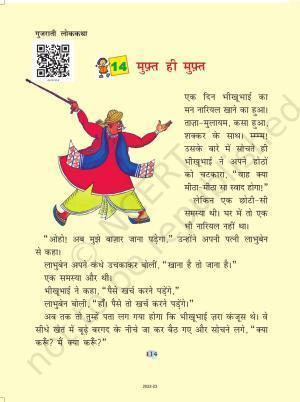 गुजराती लोककथा
14 मुफ़्त ही मुफ़्त
एक दिन भीखूभाई का
मन नारियल खाने का हुआ।
ताज़ा-मुलायम, कसा हुआ,
शक्कर के साथ। म्म्म्म!
उसके बारे में सोचते ही
भीखूभाई ने अपने होठों
को चटकारा, “वाह क्या
मीठा-मीठा सा स्वाद होगा!”
लेकिन एक छोटी-सी
समस्या थी। घर में तो एक
भी नारियल नहीं था।
“ओहो! अब मुझे बाज़ार जाना पड़ेगा,” उन्होंने अपनी पत्नी लाभुबेन
से कहा।
लाभुबेन अपने कंधे उचकाकर बोलीं, “खाना है तो जाना है।”
एक समस्या और थी।
भीखूभाई ने कहा, “पैसे खर्च करने पड़ेंगे,”
लाभुबेन बोलीं, “हाँ। पैसे तो खर्च करने पड़ेंगे।”
अब तक तो तुम्हें पता लग गया होगा कि भीखूभाई ज़रा कंजूस थे। वे
सीधे खेत में बूढ़े बरगद के नीचे जा कर बैठ गए और सोचने लगे, “क्या
करूँ? मैं क्या करूँ?”
114
2022-23